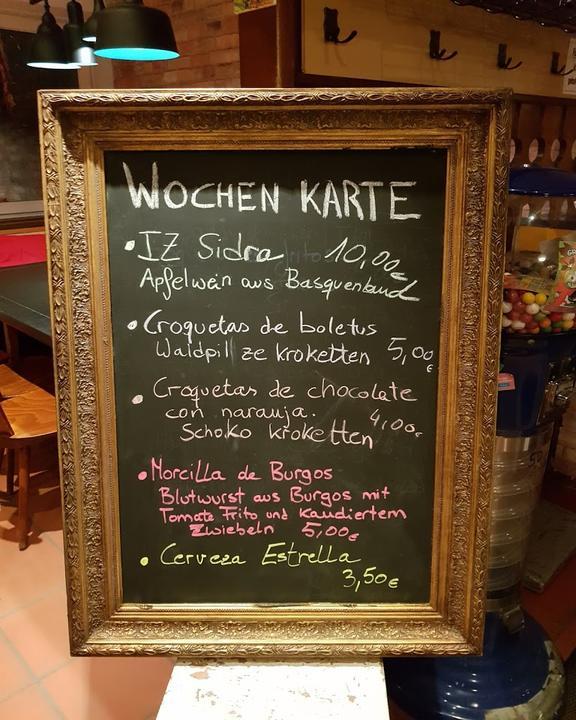 WOCHEN KARTE
• IZ Sidra 10,00€
Apfelwein aus Basquenland
• Croquetas de boletus
Waldpilze kroketten 5,00€
• Croquetas de chocolate
con naranja. 4,00€
Schoko kroketten
• Morcilla de Burgos
Blutwurst aus Burgos mit
Tomate Frito und kandiertem
Zwiebeln 5,00€
• Cerveza Estrella
3,50€